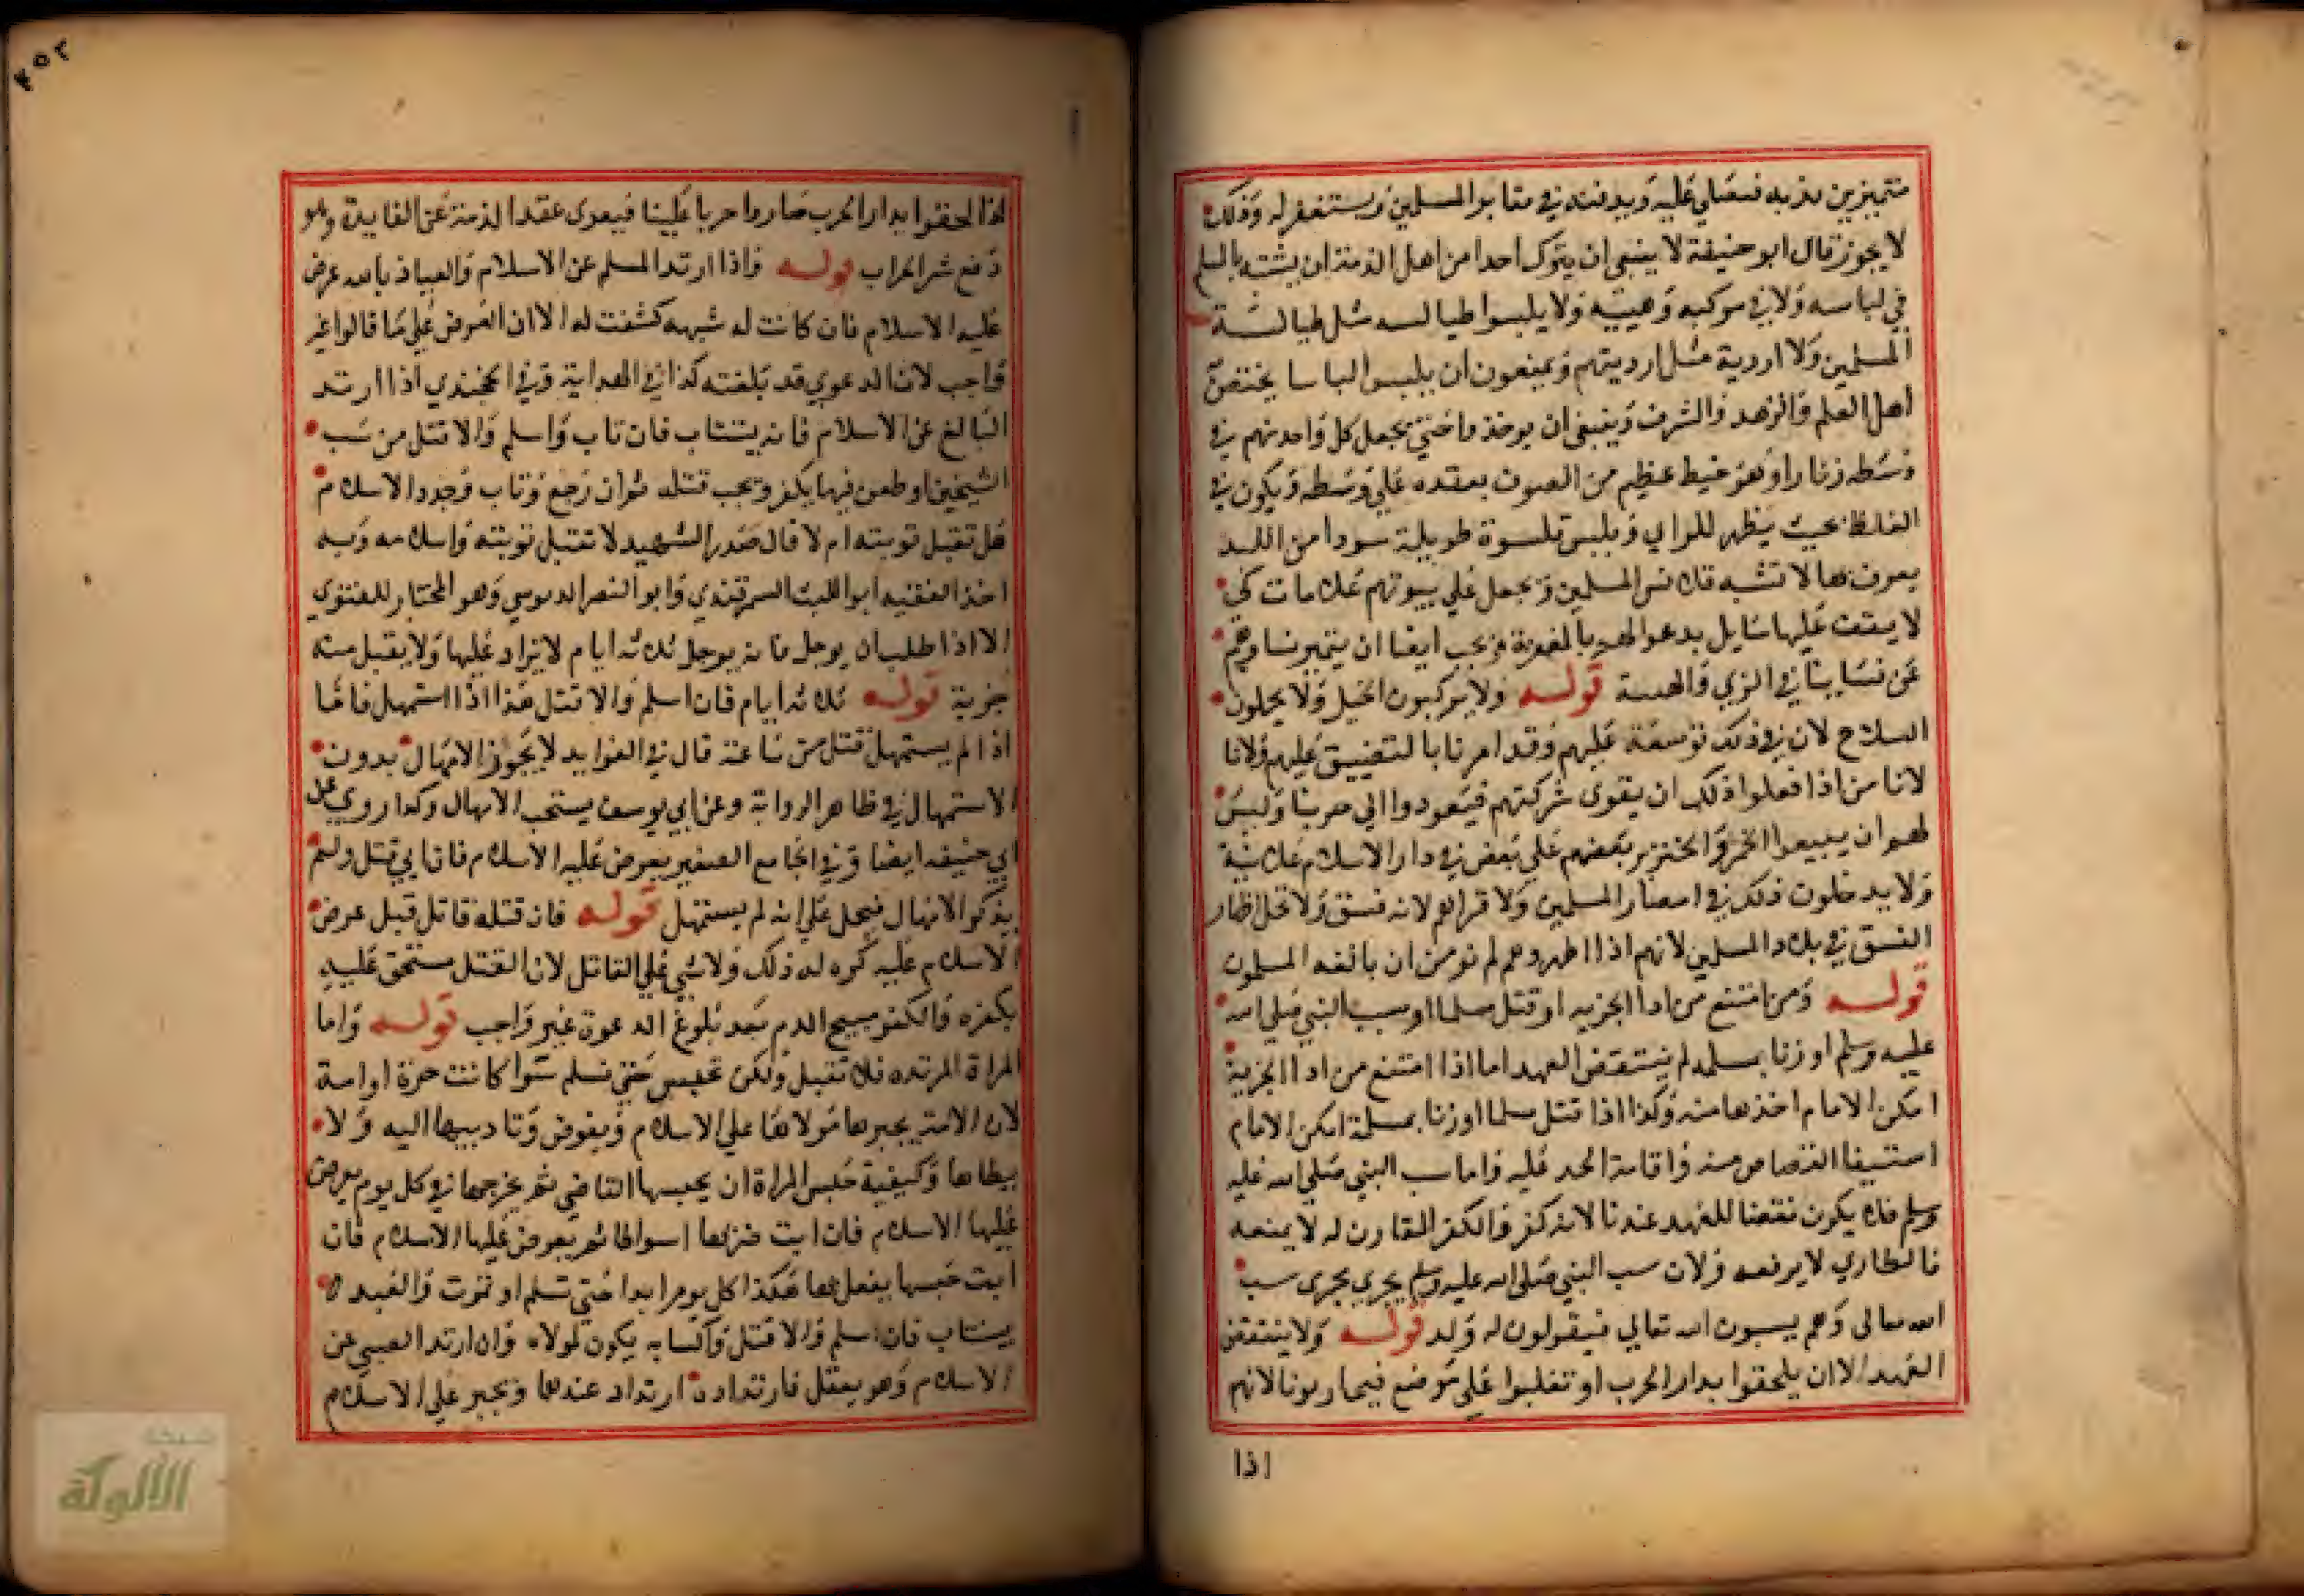 متميزين بذ به فنصلي عليه ويدفنه في مقابر المسلمين ويستغفر له وذلك
لا يجوز قال ابو حنيفة لا ينبغي ان يترك احدا من اهل الذمة ان يشتبه بالمسلم
في لباسه ولا في مركبه وهيبته ولا يلبسوا طيالسه مثل طيالسة
المسلمين ولا اردية مثل ارديتهم ويمنعون ان يلبسوا لباسا يختص
اهل العلم والزهد والشرف وينبغي ان يوخذوا حتى يجعل كل واحد منهم في
وسطه زنارا وهو خيط عظيم من الصوف يعقده على وسطه ويكون في
الغلظ بحيث يظهر للراي ويلبس قلنسوة طويلة سودا من اللبد
يعرف بها لا تشبه قلانس المسلمين ويجعل على بيوتهم علامات كي
لا يقف عليها سايل يدعوا لهم بالمغفرة ويجب ايضا ان يتميز نساوهم
عن نساينا في الزي والهيية قوله ولا يركبون الخيل ولا يحملون
السلاح لان في ذلك توسعة عليهم وقد امرنا بالتضييق عليهم ولانا
لانا من اذا فعلوا ذلك ان يقوى شركتهم فيعودوا الى حربنا وليس
لهم ان يبيعوا الخمر والخنزير بعضهم على بعض في دار الاسلام علانية
ولا يدخلون ذلك في امصار المسلمين ولا قراهم لانه فسق ولا يحل اظهار
الفسق في بلاد المسلمين لانهم اذا اظهروهم لم نومن ان يالفه المسلمون
قوله ومن امتنع من ادا الجزيه او قتل مسلما او سب النبي صلى الله
عليه وسلم او زنا بمسلمه لم ينتقض العهد اما اذا امتنع من ادا الجزية
امكن الامام اخذها منه وكذا اذا قتل مسلما او زنا بمسلمة امكن الامام
استيفا القصاص منه واقامة الحد عليه واما سب النبي صلى الله عليه
وسلم فلا يكون نقضا للعهد عندنا لانه كفر والكفر المقارن له لا يمنعه
فالطاري لا يرفعه ولان سب النبي صلى الله عليه وسلم يجري مجرى سب
الله تعالى وهم يسبون الله تعالى فيقولون له ولد قوله ولا ينتقض
العهد الا ان يلحقوا بدار الحرب او تغلبوا على موضع فيحاربونا لانهم
اذا
٢٥٢
اذا لحقوا بدار الحرب صاروا حربا علينا فيعرى عقد الذمة عن الفايدة وهو
دفع شر الحراب قوله واذا ارتد المسلم عن الاسلام والعياذ بالله عرض
عليه الاسلام فان كانت له شبهه كشفت له الا ان العرض على ما قالوا غير
واجب لان الدعوي قد بلغته كذا في الهداية وفي الخجندي اذا ارتد
البالغ عن الاسلام فانه يستتاب فان تاب واسلم والا قتل من سب
الشيخين او طعن فيهما يكفر ويجب قتله ثم ان رجع وتاب وجدد الاسلام
هل تقبل توبته ام لا قال صدر الشهيد لا تقبل توبته واسلامه وبه
اخذ الفقيه ابو الليث السمرقندي وابو النصر الدبوسي وهو المختار للفتوي
الا اذا طلب ان يوجل فانه يوجل ثلاثه ايام لا يزاد عليها ولا يقبل منه
جزية قوله ثلاثه ايام فان اسلم والا قتل هذا اذا استمهل فاما
اذا لم يستمهل قتل من ساعته قال في الفوايد لا يجوز الامهال بدون
الاستمهال في ظاهر الرواية وعن ابي يوسف يستحب الامهال وكذا روي عن
ابي حنيفه ايضا وفي الجامع الصغير يعرض عليه الاسلام فان ابي قتل ولم
يذكر الامهال فيحمل على انه لم يستمهل قوله فان قتله قاتل قبل عرض
الاسلام عليه كره له ذلك ولا شي على القاتل لان القتل مستحق عليه
بكفره والكفر مبيح الدم بعد بلوغ الدعوة غير واجب قوله واما
المراة المرتده فلا تقتل ولكن تحبس حتى تسلم سوا كانت حرة او امة
لان الامة يجبرها مولاها على الاسلام ويفوض وتاديبها اليه ولا
يطاها وكيفية حبس المراة ان يحبسها القاضي ثم يخرجها في كل يوم يعرض
عليها الاسلام فان ابت ضربها اسواطا ثم يعرض عليها الاسلام فان
ابت حبسها يفعل بها هكذا كل يوم ابدا حتى تسلم او تموت والعبد
يستتاب فان اسلم والا قتل واكسابه يكون لمولاه وان ارتد الصبي عن
الاسلام وهو يعقل فارتداده ارتداد عندهما ويجبر على الاسلام
شبكة
الألوكة